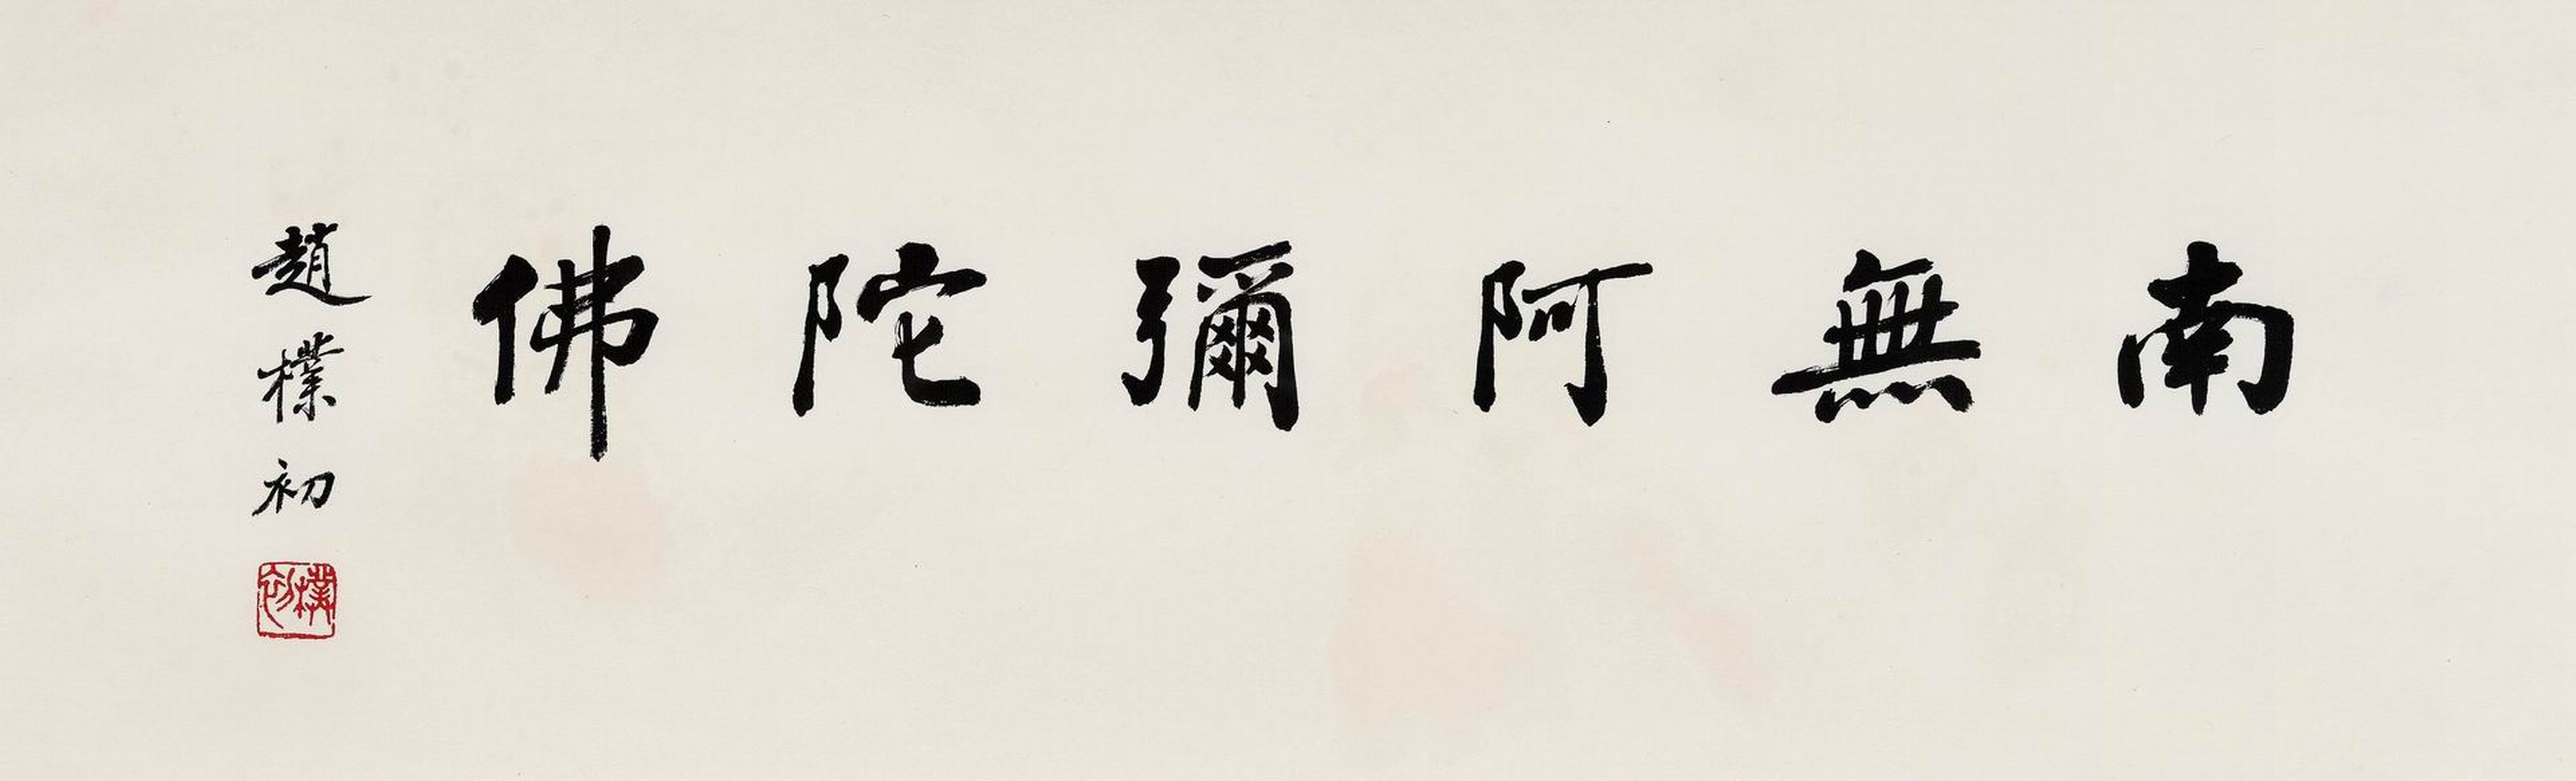 南無阿彌陀佛
趙樸初
樸初